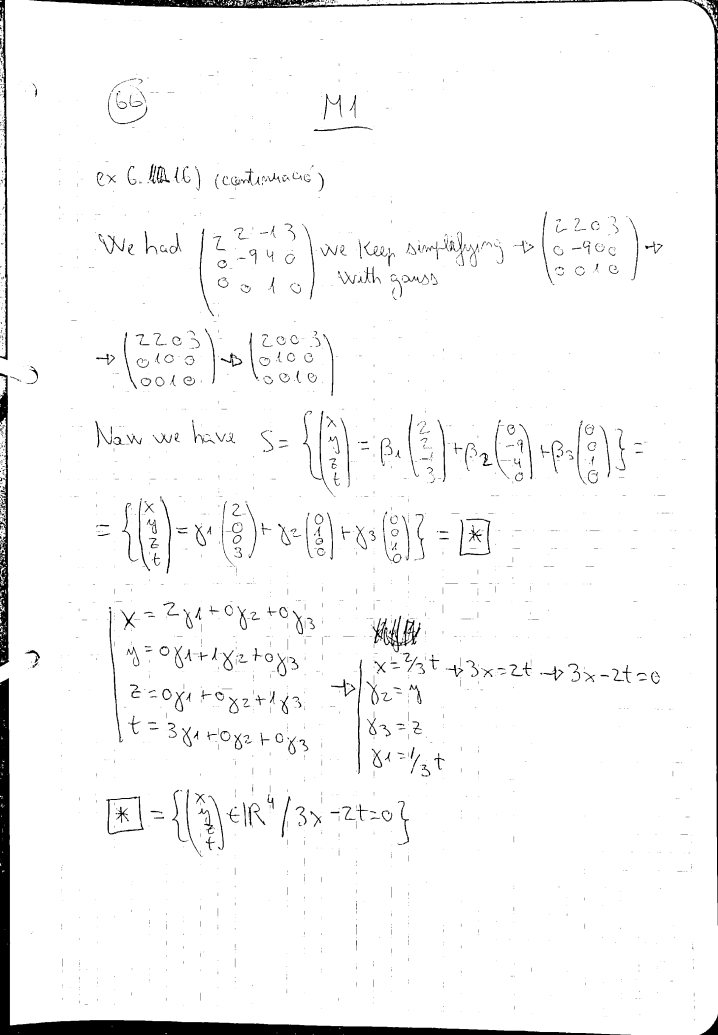 66
M1
ex 6. 16) (continuació)
We had (2 2 -1 3 / 0 -9 4 0 / 0 0 1 0) we keep simplifying with gauss → (2 2 0 3 / 0 -9 0 0 / 0 0 1 0) →
→ (2 2 0 3 / 0 1 0 0 / 0 0 1 0) → (2 0 0 3 / 0 1 0 0 / 0 0 1 0)
Now we have S = {(x y z t) = β1 (2 2 -1 3) + β2 (0 -9 -4 0) + β3 (0 0 1 0)} =
= {(x y z t) = γ1 (2 0 0 3) + γ2 (0 1 0 0) + γ3 (0 0 1 0)} = [*]
x = 2γ1 + 0γ2 + 0γ3
y = 0γ1 + 1γ2 + 0γ3
z = 0γ1 + 0γ2 + 1γ3
t = 3γ1 + 0γ2 + 0γ3
→ x = 2/3 t → 3x = 2t → 3x - 2t = 0
γ2 = y
γ3 = z
γ1 = 1/3 t
[*] = {(x y z t) ∈ ℝ⁴ / 3x - 2t = 0}